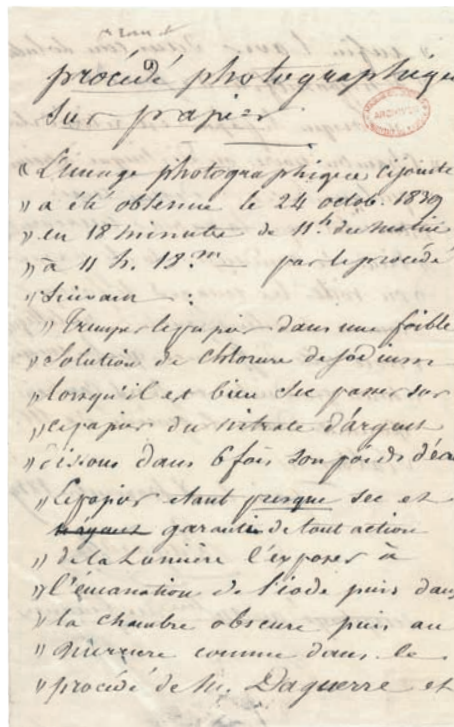 procédé photographique
sur papier
ARCHIVES
« L'image photographique cijointe
» a été obtenue le 24 octob. 1839
» en 18 minutes de 11h. du matin
» à 11 h. 18.m par le procédé
» Suivan :
» tremper le papier dans une foible
» Solution de chlorure de sodium
» lorsqu'il est bien sec passer sur
» ce papier du nitrate d'argent
» dissous dans 6 fois son poids d'eau
» Le papier etant presque sec et
garanti de tout action
» de la Lumière l'exposer à
» l'émanation de l'iode puis dans
» la chambre obscure puis au
» mercure comme dans le
» procédé de M. Daguerre et